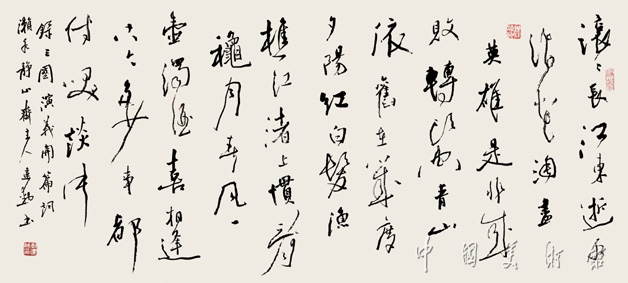 滚〻長江東逝水
浪花淘盡
英雄是非成
敗轉頭空青山
依舊在幾度
夕陽紅白髮漁
樵江渚上慣看
穐月春風一
壺濁酒喜相逢
古今多少事都
付笑談中
錄三國演義開篇詞
瀨水靜心齋主人書
中國美術